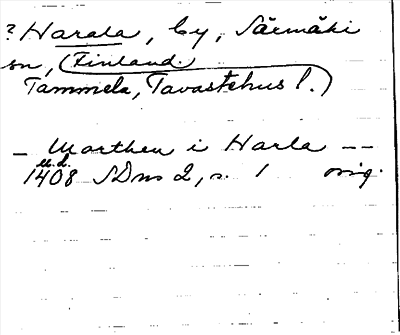 ? Harala, by, Särmäki
sn, (Finland.
Tammela, Tavastehus l.)
— Marthen i Harla ——
u.d.
1408 SDns 2, s. 1 orig.